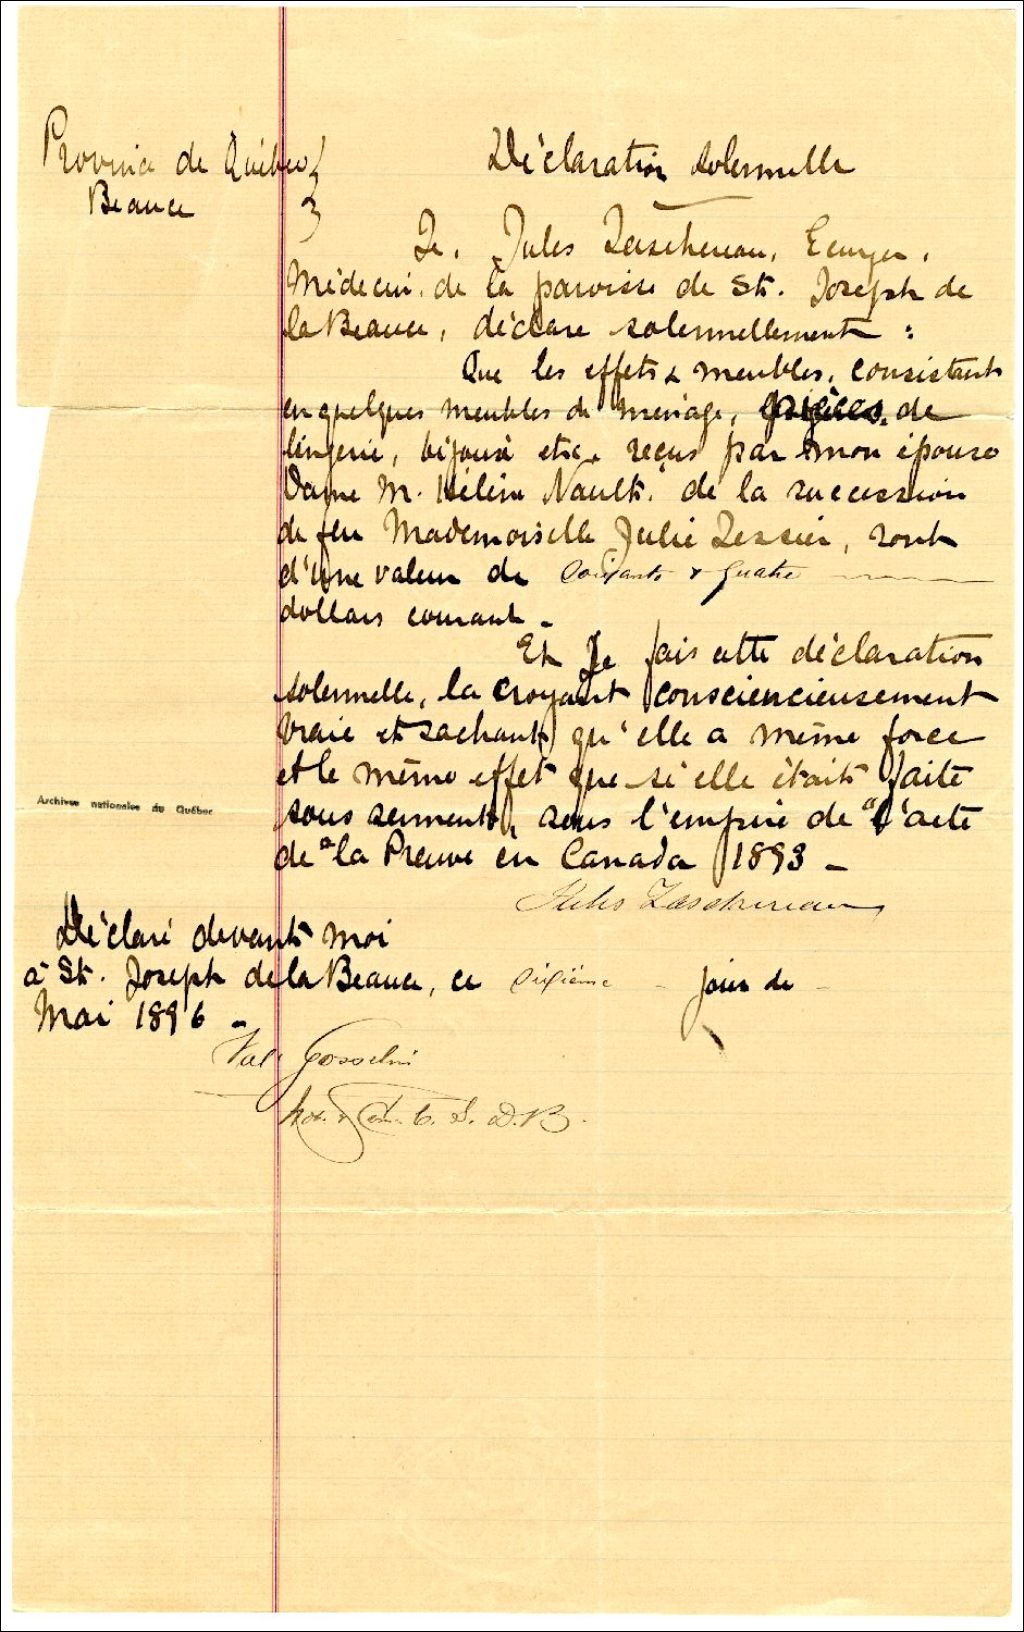 Province de Québec
Beauce
Déclaration solennelle
Je, Jules Taschereau, Ecuyer,
Médecin, de la paroisse de St. Joseph de
la Beauce, déclare solennellement :
Que les effets & meubles, consistant
en quelques meubles de ménage, pièces de
lingerie, bijoux etc, reçus par mon épouse
Dame M. Hélène Nault, de la succession
de feu Mademoiselle Julie Tessier, sont
d'une valeur de soixante & quatre
dollars courant -
Et Je fais cette déclaration
solennelle, la croyant consciencieusement
vraie et sachant qu'elle a même force
et le même effet que si elle était faite
sous serment, sous l'empire de "l'acte
de "la Preuve en Canada 1893 -
Jules Taschereau
Archives nationales du Québec
Déclaré devant moi
à St. Joseph de la Beauce, ce sixième - jour de -
Mai 1896 -
Gosselin
C. S. D. B.